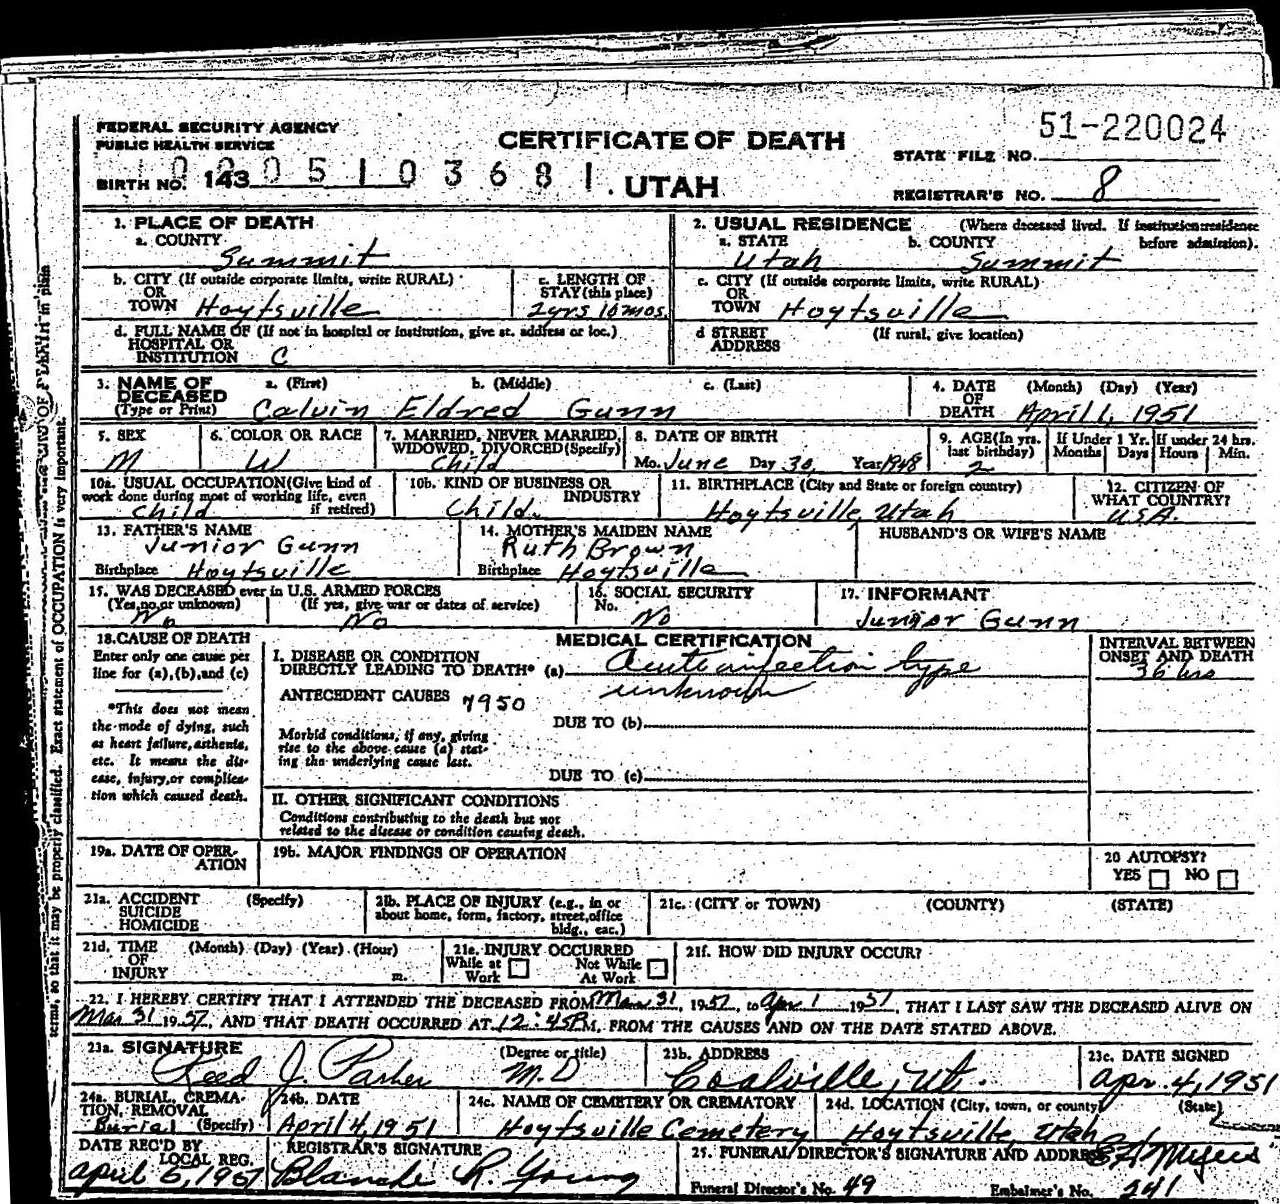 FEDERAL SECURITY AGENCY
PUBLIC HEALTH SERVICE
CERTIFICATE OF DEATH
51-220024
STATE FILE NO.
BIRTH NO. 143
1 0 2 0 5 1 0 3 6 8 1
UTAH
REGISTRAR'S NO. 8
1. PLACE OF DEATH
a. COUNTY
Summit
2. USUAL RESIDENCE (Where deceased lived. If institution residence before admission).
a. STATE b. COUNTY
Utah Summit
b. CITY (If outside corporate limits, write RURAL)
OR
TOWN Hoytsville
c. LENGTH OF
STAY (this place)
2 yrs 10 mos.
c. CITY (If outside corporate limits, write RURAL)
OR
TOWN Hoytsville
d. FULL NAME OF (If not in hospital or institution, give st. address or loc.)
HOSPITAL OR
INSTITUTION C
d STREET (If rural, give location)
ADDRESS
3. NAME OF DECEASED a. (First) b. (Middle) c. (Last)
(Type or Print) Calvin Eldred Gunn
4. DATE (Month) (Day) (Year)
OF
DEATH April 1, 1951
5. SEX
M
6. COLOR OR RACE
W
7. MARRIED, NEVER MARRIED,
WIDOWED, DIVORCED (Specify)
Child
8. DATE OF BIRTH
Mo. June Day 30, Year 1948
9. AGE (In yrs. last birthday)
2
If Under 1 Yr. Months Days
If under 24 hrs. Hours Min.
10a. USUAL OCCUPATION (Give kind of
work done during most of working life, even
if retired)
Child
10b. KIND OF BUSINESS OR
INDUSTRY
Child
11. BIRTHPLACE (City and State or foreign country)
Hoytsville, Utah
12. CITIZEN OF
WHAT COUNTRY?
USA.
13. FATHER'S NAME
Junior Gunn
Birthplace Hoytsville
14. MOTHER'S MAIDEN NAME
Ruth Brown
Birthplace Hoytsville
HUSBAND'S OR WIFE'S NAME
15. WAS DECEASED ever in U.S. ARMED FORCES
(Yes, no, or unknown) (If yes, give war or dates of service)
No No
16. SOCIAL SECURITY
No.
No
17. INFORMANT
Junior Gunn
18. CAUSE OF DEATH
Enter only one cause per
line for (a), (b), and (c)
*This does not mean
the mode of dying, such
as heart failure, asthenia,
etc. It means the dis-
ease, injury, or complica-
tion which caused death.
MEDICAL CERTIFICATION
I. DISEASE OR CONDITION
DIRECTLY LEADING TO DEATH* (a) Acute infection type
unknown
ANTECEDENT CAUSES 7950
DUE TO (b)
Morbid conditions, if any, giving
rise to the above cause (a) stat-
ing the underlying cause last.
DUE TO (c)
II. OTHER SIGNIFICANT CONDITIONS
Conditions contributing to the death but not
related to the disease or condition causing death.
INTERVAL BETWEEN
ONSET AND DEATH
36 hrs
19a. DATE OF OPER-
ATION
19b. MAJOR FINDINGS OF OPERATION
20 AUTOPSY?
YES NO
21a. ACCIDENT (Specify)
SUICIDE
HOMICIDE
21b. PLACE OF INJURY (e.g., in or
about home, form, factory, street, office
bldg., eac.)
21c. (CITY or TOWN) (COUNTY) (STATE)
21d. TIME (Month) (Day) (Year) (Hour)
OF
INJURY m.
21e. INJURY OCCURRED
While at Work Not While At Work
21f. HOW DID INJURY OCCUR?
22. I HEREBY CERTIFY THAT I ATTENDED THE DECEASED FROM Mar 31, 1951, to Apr. 1 1951, THAT I LAST SAW THE DECEASED ALIVE ON
Mar 31 1951, AND THAT DEATH OCCURRED AT 12:45 P.M, FROM THE CAUSES AND ON THE DATE STATED ABOVE.
23a. SIGNATURE (Degree or title)
Reed J. Parker M.D
23b. ADDRESS
Coalville, Ut.
23c. DATE SIGNED
Apr. 4, 1951
24a. BURIAL, CREMA-
TION, REMOVAL
(Specify) Burial
24b. DATE
April 4, 1951
24c. NAME OF CEMETERY OR CREMATORY
Hoytsville Cemetery
24d. LOCATION (City, town, or county) (State)
Hoytsville, Utah
DATE REC'D BY
LOCAL REG.
April 5, 1951
REGISTRAR'S SIGNATURE
Blanche R. Young
25. FUNERAL DIRECTOR'S SIGNATURE AND ADDRESS
Funeral Director's No. 49 Embalmer's No. 341
terms, so that it may be properly classified. Exact statement of OCCUPATION is very important.